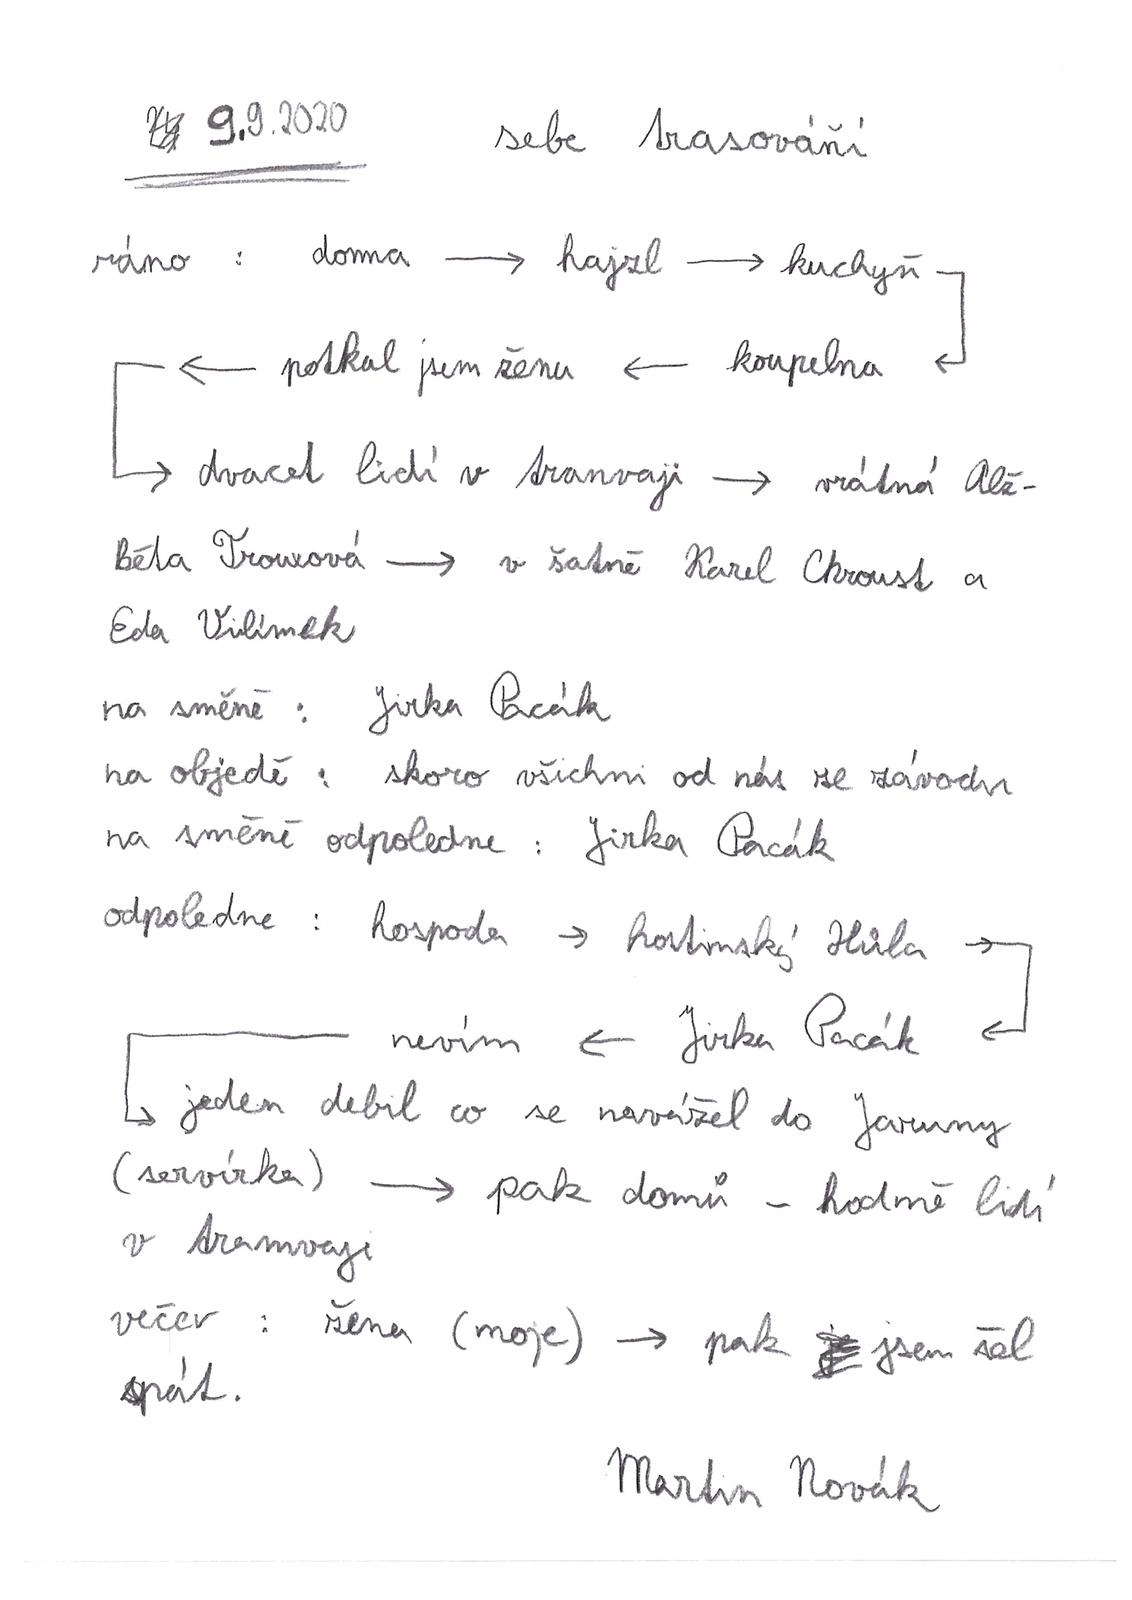 9.9.2020 sebe trasováňí
ráno : doma → hajzl → kuchyň
← potkal jsem ženu ← koupelna
→ dvacet lidí v tranvaji → vrátná Alž-
Běta Trouxová → v šatně Karel Chroust a
Eda Vilímek
na směně : Jirka Pacák
na objedě : skoro všichni od nás ze závodu
na směně odpoledne : Jirka Pacák
odpoledne : hospoda → hostinský Hůla →
nevím ← Jirka Pacák ←
→ jeden debil co se navážel do Jaruny
(servírka) → pak domů - hodmě lidí
v tramvaji
večer : žena (moje) → pak jsem šel
spát.
Martin Novák